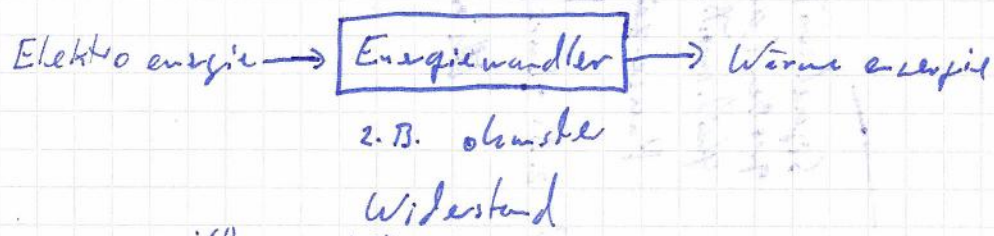 Elektroenergie → Energiewandler → Wärmeenergie
z.B. ohmscher
Widerstand